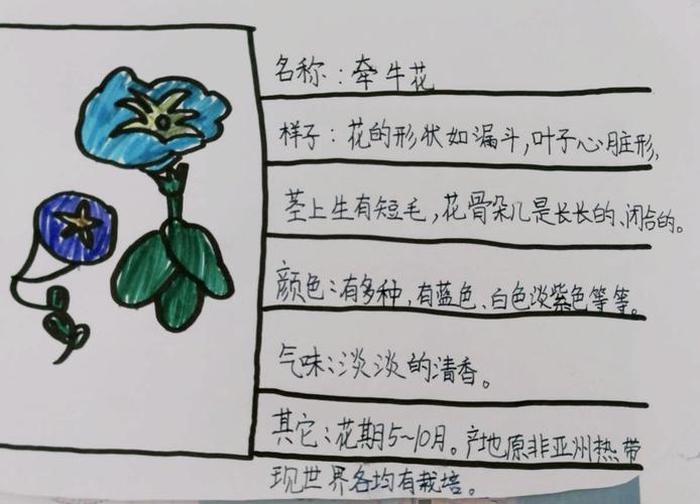 名称：牵牛花
样子：花的形状如漏斗，叶子心脏形，
茎上生有短毛，花骨朵儿是长长的、闭合的。
颜色：有多种，有蓝色、白色淡紫色等等。
气味：淡淡的清香。
其它：花期5~10月。产地原非亚州热带
现世界各均有栽培。